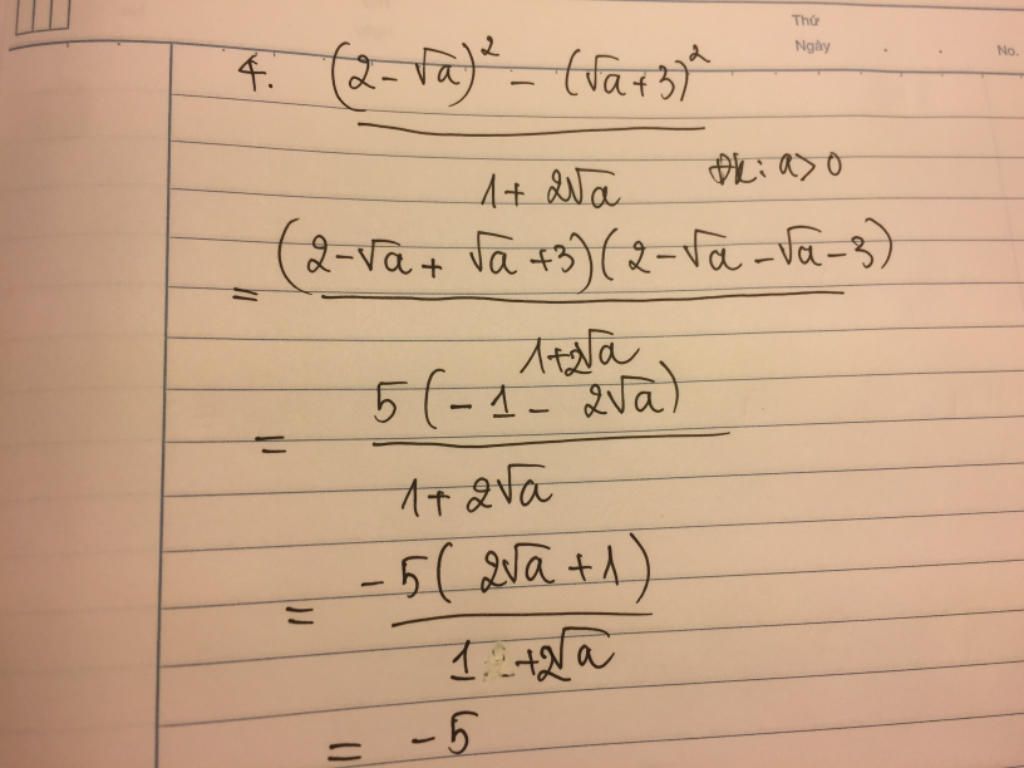 Thứ
Ngày . . No.
4. (2-√a)² - (√a+3)²
1+ 2√a đk: a>0
= (2-√a+ √a+3)(2-√a-√a-3)
1+2√a
= 5(-1- 2√a)
1+ 2√a
= -5( 2√a+1)
1 +2√a
= -5